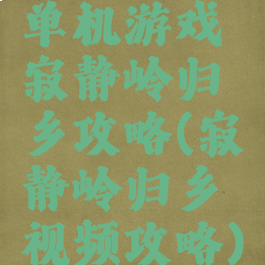 单机游戏
寂静岭归
乡攻略(寂
静岭归乡
视频攻略)